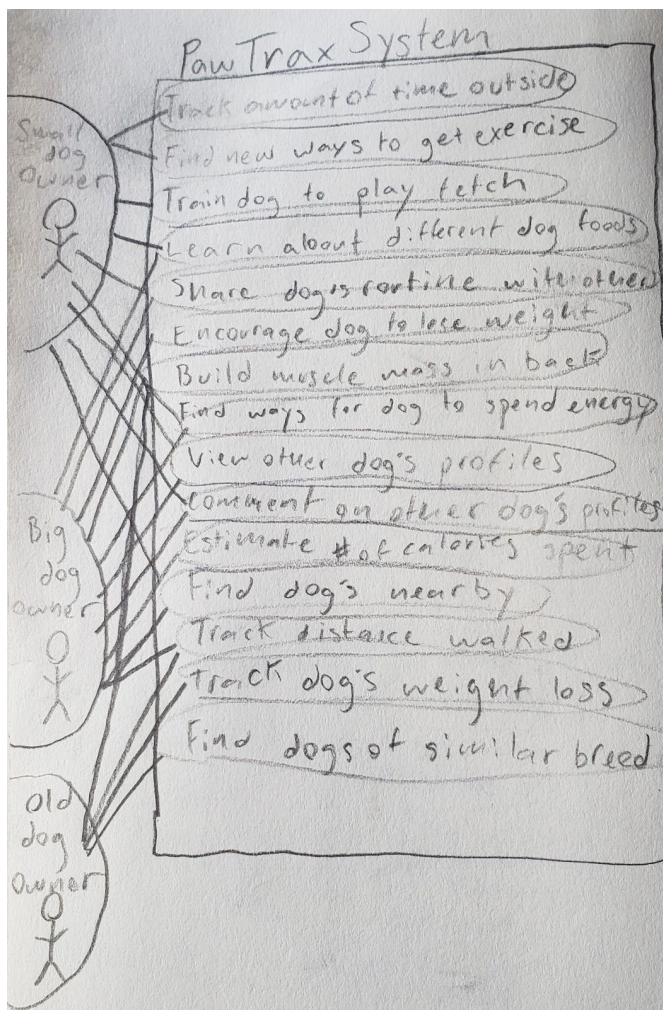 PawTrax System
Track amount of time outside
Find new ways to get exercise
Train dog to play fetch
Learn about different dog foods
Share dog's routine with other
Encourage dog to lose weight
Build muscle mass in back
Find ways for dog to spend energy
View other dog's profiles
Comment on other dog's profiles
Estimate # of calories spent
Find dog's nearby
Track distance walked
Track dog's weight loss
Find dogs of similar breed
Small
dog
Owner
Big
dog
owner
Old
dog
Owner